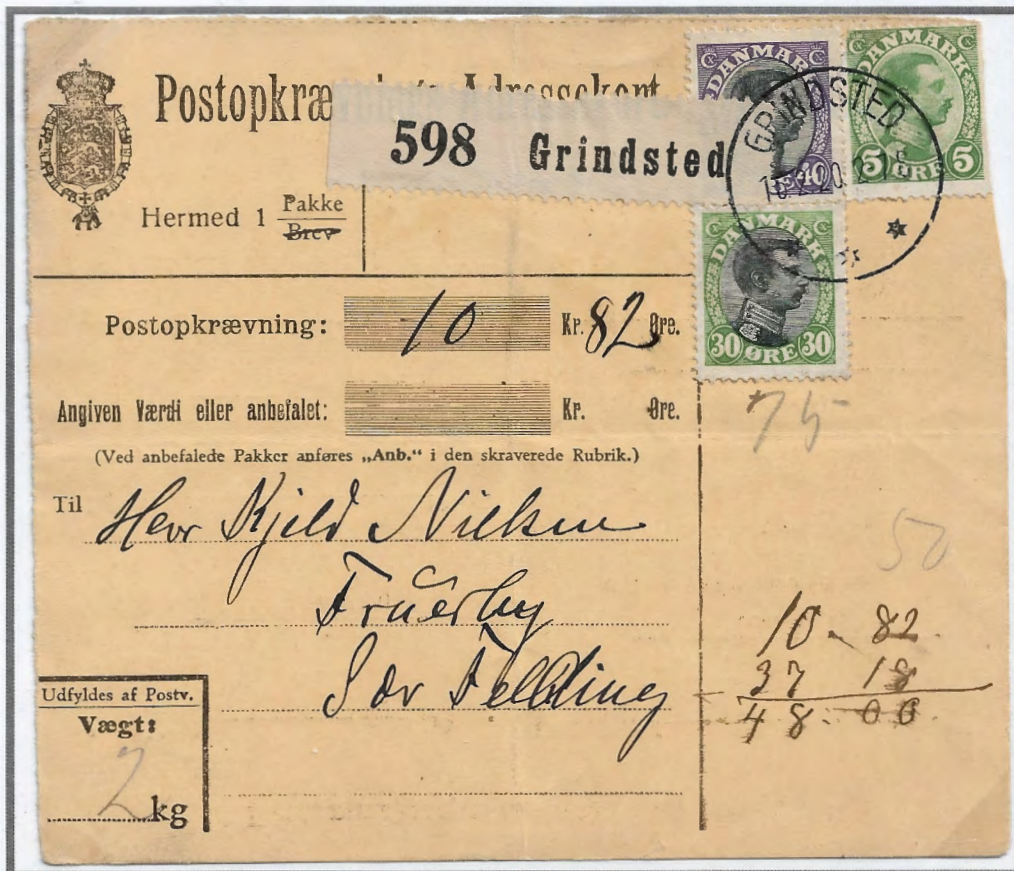 Postopkræ
598 Grindsted
Hermed 1 Pakke
Brev
DANMARK
40
DANMARK
5 ØRE 5
GRINDSTED
DANMARK
30 ØRE 30
Postopkrævning: 10 Kr. 82 Øre.
Angiven Værdi eller anbefalet: Kr. Øre.
(Ved anbefalede Pakker anføres „Anb.“ i den skraverede Rubrik.)
75
Til Herr Kjeld Nielsen
50
Sdr Felding
10 - 82
37 18
48 - 00
Udfyldes af Postv.
Vægt:
2 kg